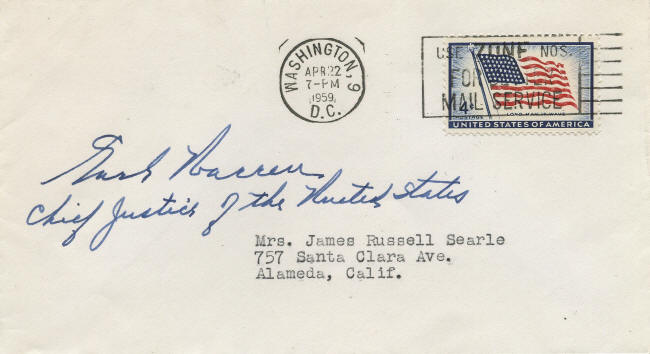 WASHINGTON, 9
APR 22
7-PM
1959
D.C.
USE ZONE NOS.
FOR
MAIL SERVICE
4¢
POSTAGE
LONG MAY IT WAVE
UNITED STATES OF AMERICA
Earl Warren
Chief Justice of the United States
Mrs. James Russell Searle
757 Santa Clara Ave.
Alameda, Calif.